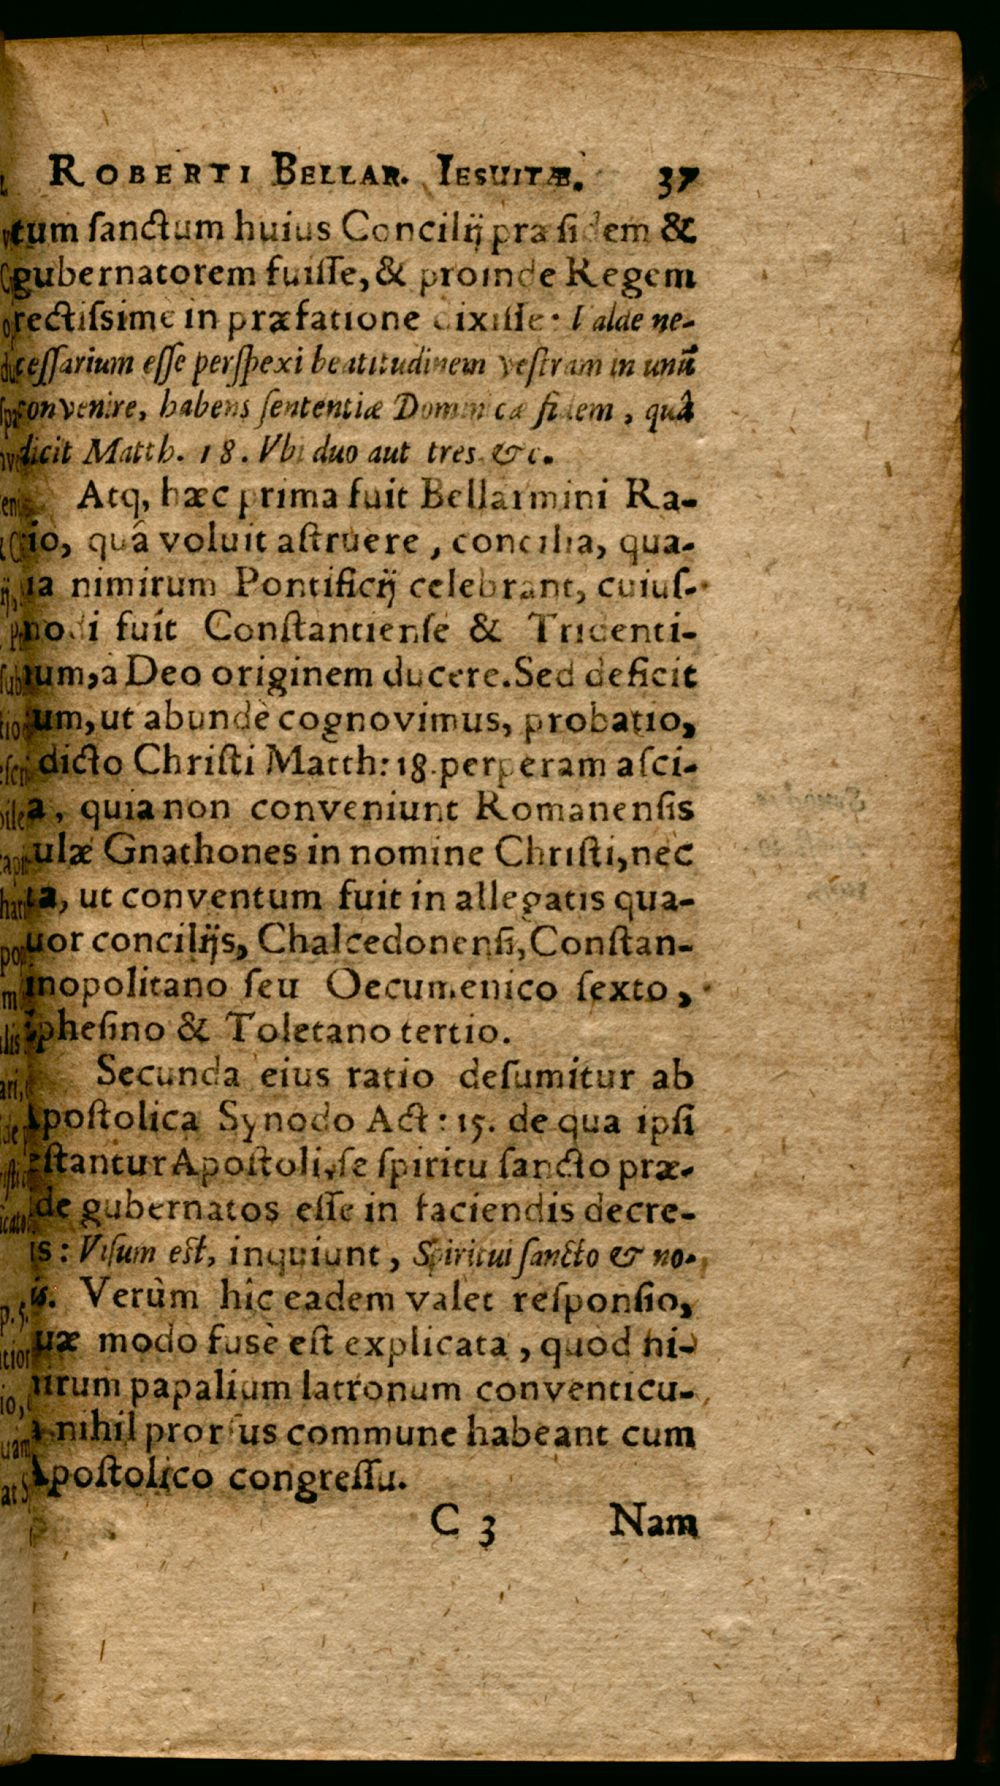 ROBERTI BELLAR. IESUITÆ. 37
tum sanctum huius Concilij præsidem &
gubernatorem fuisse, & proinde Regem
rectissime in præfatione dixisse: Valde ne-
cessarium esse perspexi beatitudinem vestram in unũ
convenire, habens sententiæ Dominicæ fidem, quâ
dicit Matth. 18. Vbi duo aut tres &c.
Atq, hæc prima fuit Bellarmini Ra-
io, quâ voluit astruere, concilia, qua-
ia nimirum Pontificij celebrant, cuius-
modi fuit Constantiense & Tridenti-
num, à Deo originem ducere. Sed deficit
um, ut abundè cognovimus, probatio,
dicto Christi Matth: 18. perperam asci-
a, quia non conveniunt Romanensis
ulæ Gnathones in nomine Christi, nec
ta, ut conventum fuit in allegatis qua-
uor concilijs, Chalcedonensi, Constan-
inopolitano seu Oecumenico sexto,
Ephesino & Toletano tertio.
Secunda eius ratio desumitur ab
Apostolica Synodo Act: 15. de qua ipsi
estantur Apostoli, se spiritu sancto præ-
de gubernatos esse in faciendis decre-
is: Visum est, inquiunt, Spiritui sancto & no-
is. Verùm hîc eadem valet responsio,
uæ modo fusè est explicata, quòd ni-
irum papalium latronum conventicu-
a nihil prorsus commune habeant cum
Apostolico congressu.
C 3 Nam